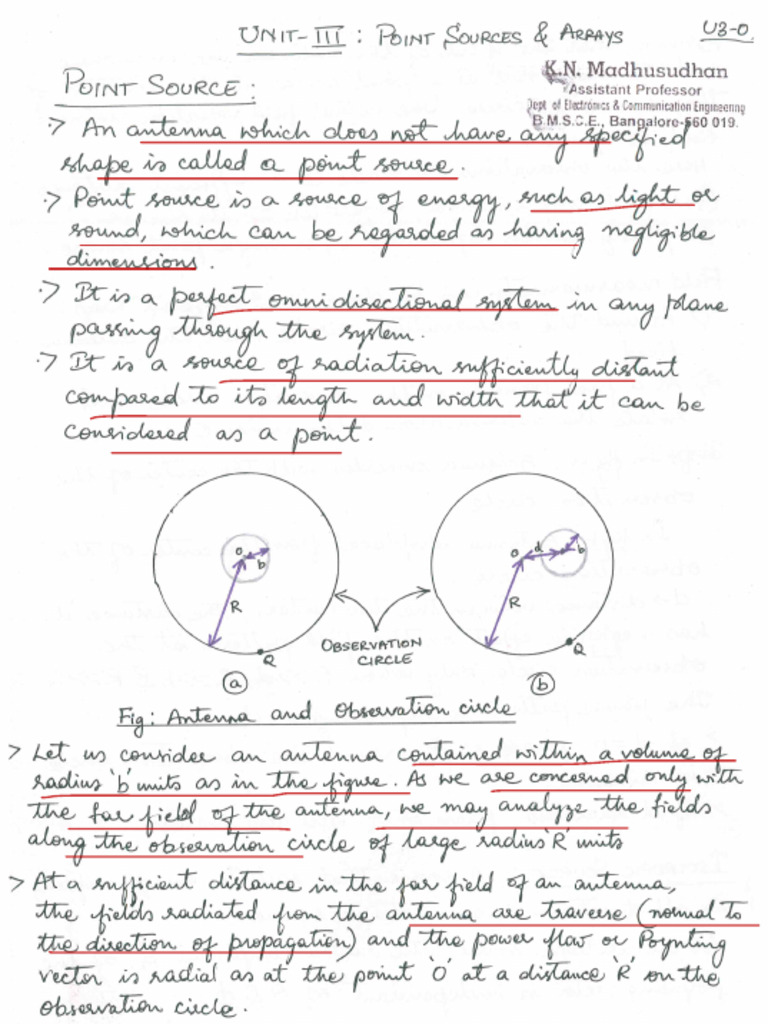 UNIT-III : POINT SOURCES & ARRAYS
U3-0
K.N. Madhusudhan
Assistant Professor
Dept of Electronics & Communication Engineering
B.M.S.C.E., Bangalore-560 019.
POINT SOURCE :
·> An antenna which does not have any specified
shape is called a point source.
·> Point source is a source of energy, such as light or
sound, which can be regarded as having negligible
dimensions.
·> It is a perfect omnidirectional system in any plane
passing through the system.
·> It is a source of radiation sufficiently distant
compared to its length and width that it can be
considered as a point.
O b
R
Q
a
O d b
R
Q
b
OBSERVATION
CIRCLE
Fig: Antenna and Observation circle
> Let us consider an antenna contained within a volume of
radius 'b' units as in the figure. As we are concerned only with
the far field of the antenna, we may analyze the fields
along the observation circle of large radius 'R' units
> At a sufficient distance in the far field of an antenna,
the fields radiated from the antenna are traverse (normal to
the direction of propagation) and the power flow or Poynting
vector is radial as at the point 'O' at a distance 'R' on the
observation circle.